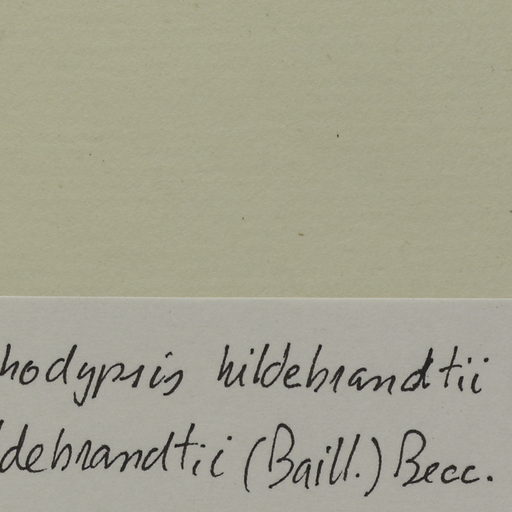 hodypsis hildebrandtii
ldebrandtii (Baill.) Becc.